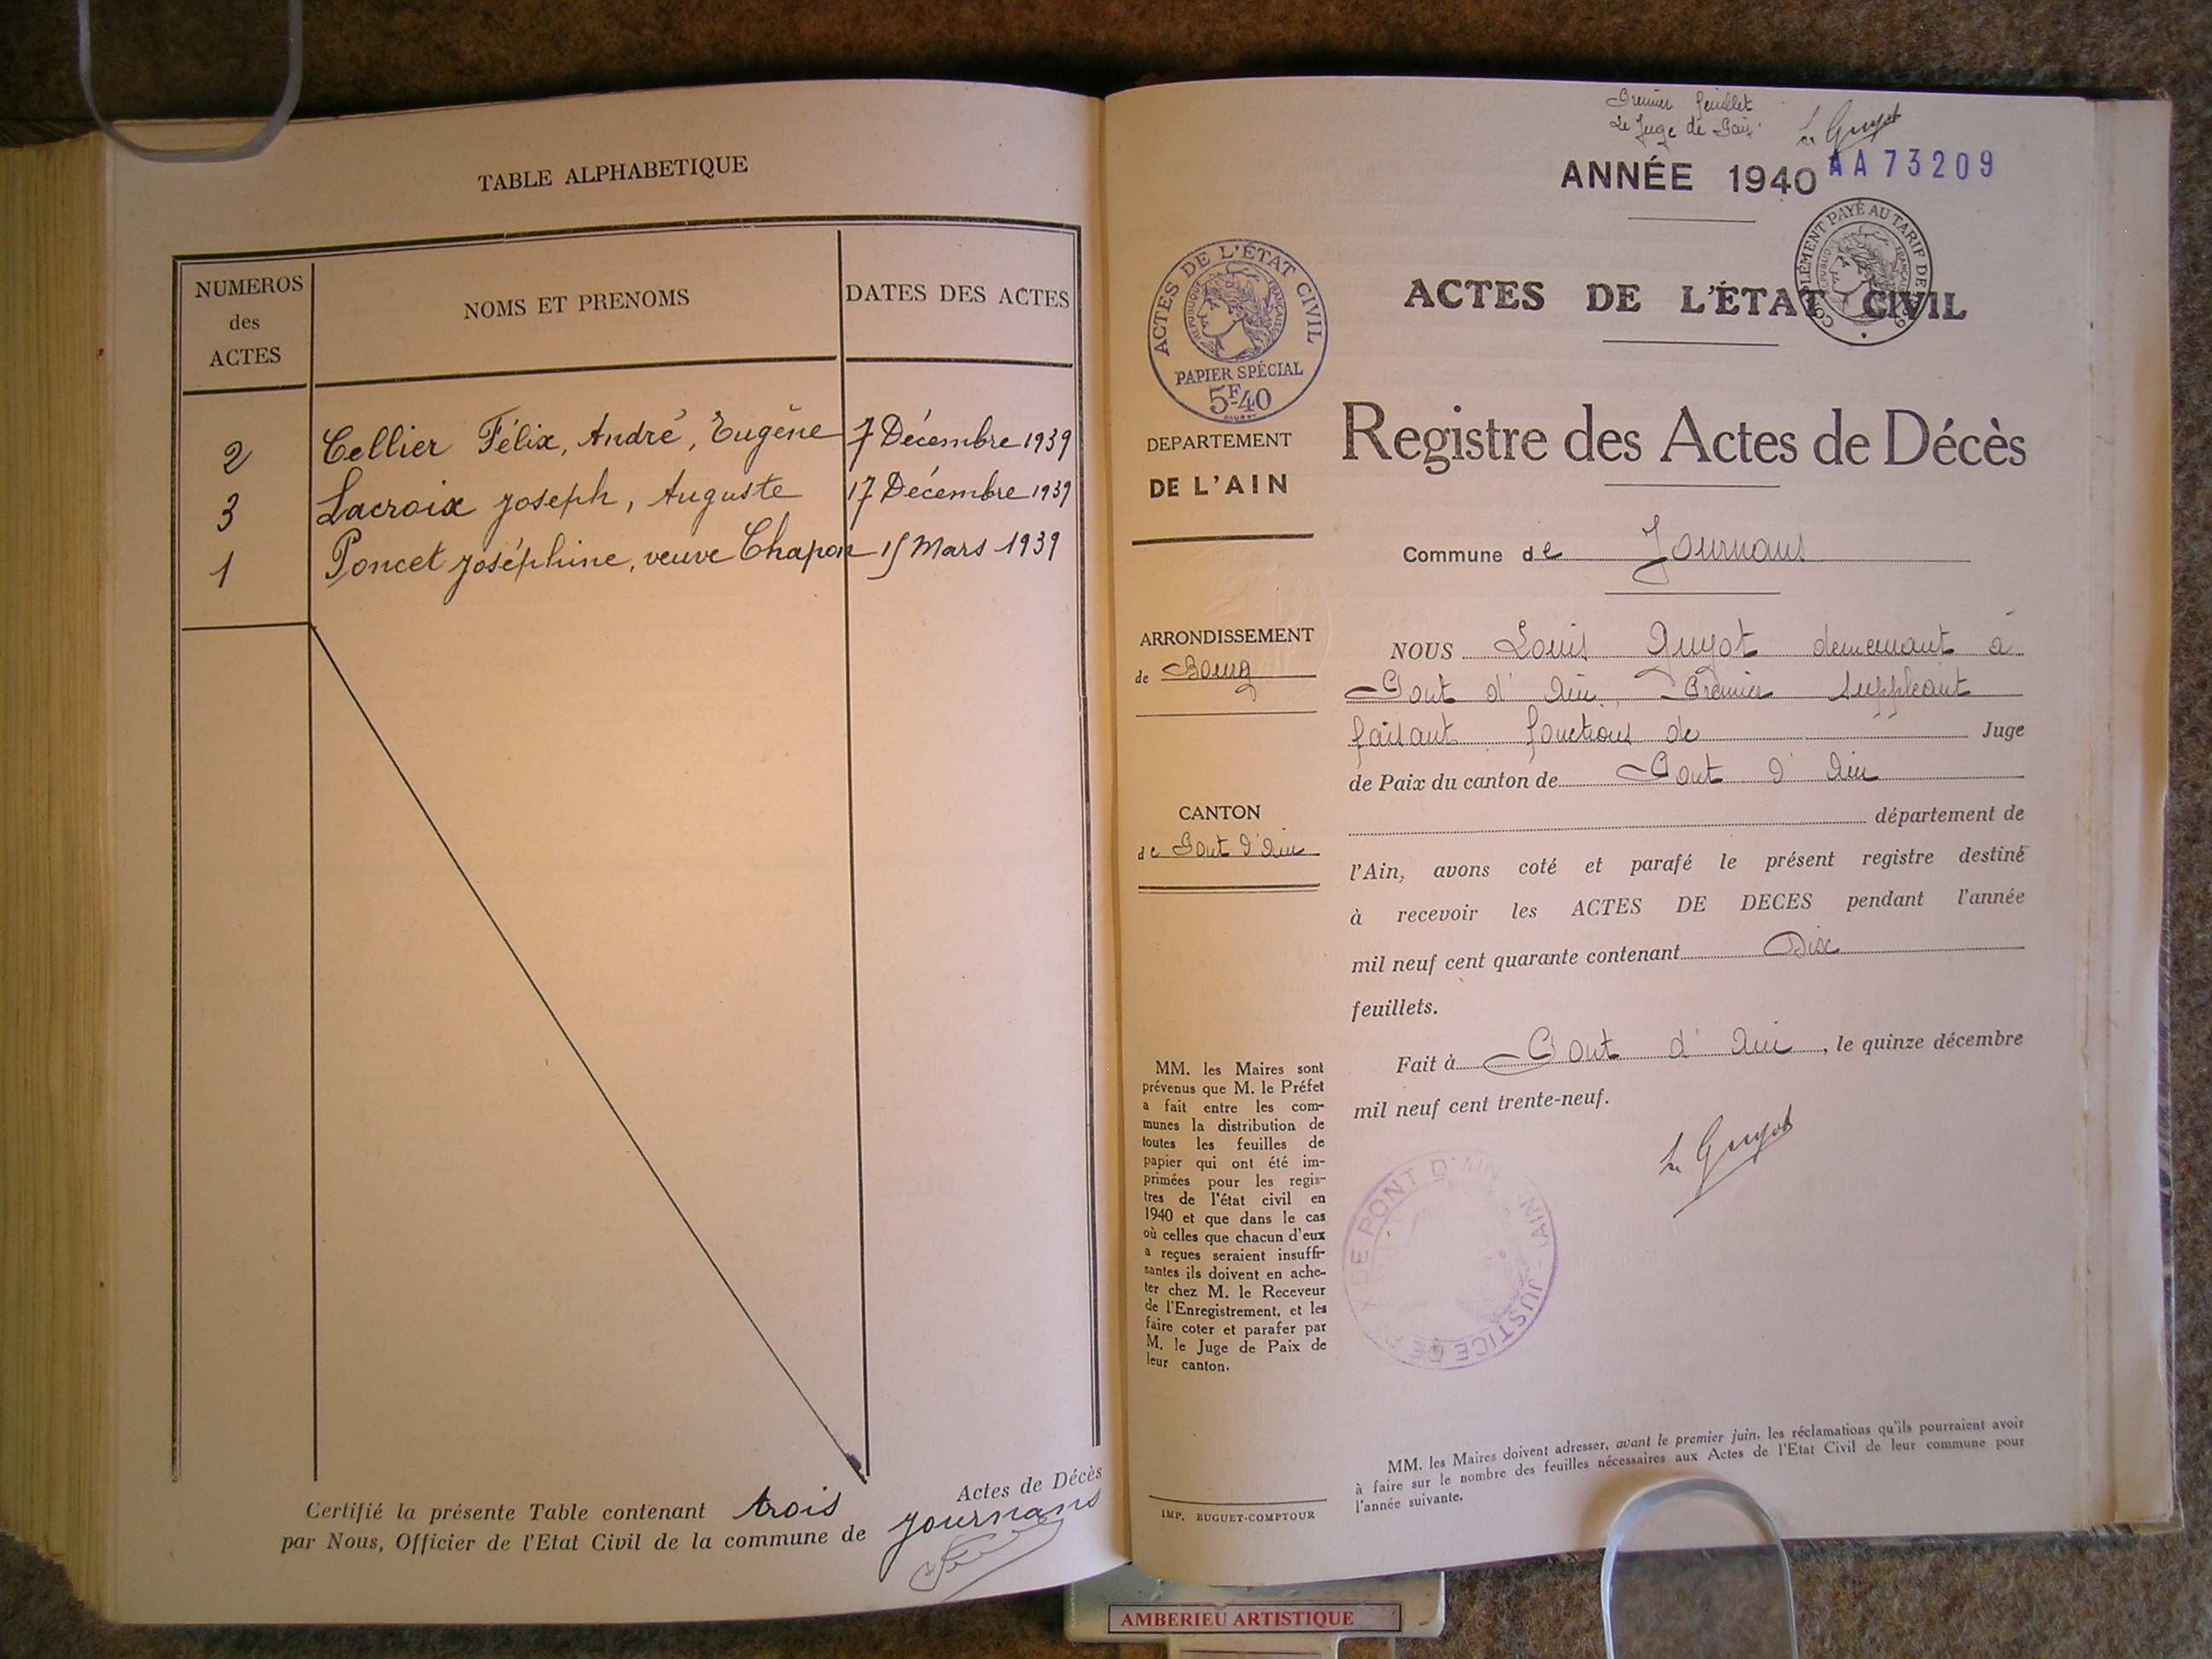 TABLE ALPHABETIQUE
NUMEROS
des
ACTES
NOMS ET PRENOMS
DATES DES ACTES
2 Cellier Félix, André, Eugène 7 Décembre 1939
3 Lacroix Joseph, Auguste 17 Décembre 1939
1 Poncet Joséphine, veuve Chapon 15 Mars 1939
Certifié la présente Table contenant trois Actes de Décès
par Nous, Officier de l'Etat Civil de la commune de Journans
Premier feuillet
Le Juge de Paix
L. Guyot
ANNÉE 1940
AA73209
ACTES DE L'ÉTAT CIVIL
Registre des Actes de Décès
Commune de Journans
ACTES DE L'ÉTAT CIVIL
RÉPUBLIQUE FRANÇAISE
PAPIER SPÉCIAL
5F40
COMPLÉMENT PAYÉ AU TARIF DE
DEPARTEMENT
DE L'AIN
ARRONDISSEMENT
de Bourg
CANTON
de Pont d'Ain
MM. les Maires sont
prévenus que M. le Préfet
a fait entre les com-
munes la distribution de
toutes les feuilles de
papier qui ont été im-
primées pour les regis-
tres de l'état civil en
1940 et que dans le cas
où celles que chacun d'eux
a reçues seraient insuffi-
santes ils doivent en ache-
ter chez M. le Receveur
de l'Enregistrement, et les
faire coter et parafer par
M. le Juge de Paix de
leur canton.
IMP. BUGUET-COMPTOUR
NOUS Louis Guyot demeurant à
Pont d'Ain, Premier suppléant
faisant fonctions de Juge
de Paix du canton de Pont d'Ain
département de
l'Ain, avons coté et parafé le présent registre destiné
à recevoir les ACTES DE DECES pendant l'année
mil neuf cent quarante contenant Dix
feuillets.
Fait à Pont d'Ain, le quinze décembre
mil neuf cent trente-neuf.
L. Guyot
DE PONT D'AIN - AIN - JUSTICE DE
MM. les Maires doivent adresser, avant le premier juin, les réclamations qu'ils pourraient avoir
à faire sur le nombre des feuilles nécessaires aux Actes de l'Etat Civil de leur commune pour
l'année suivante.
AMBERIEU ARTISTIQUE